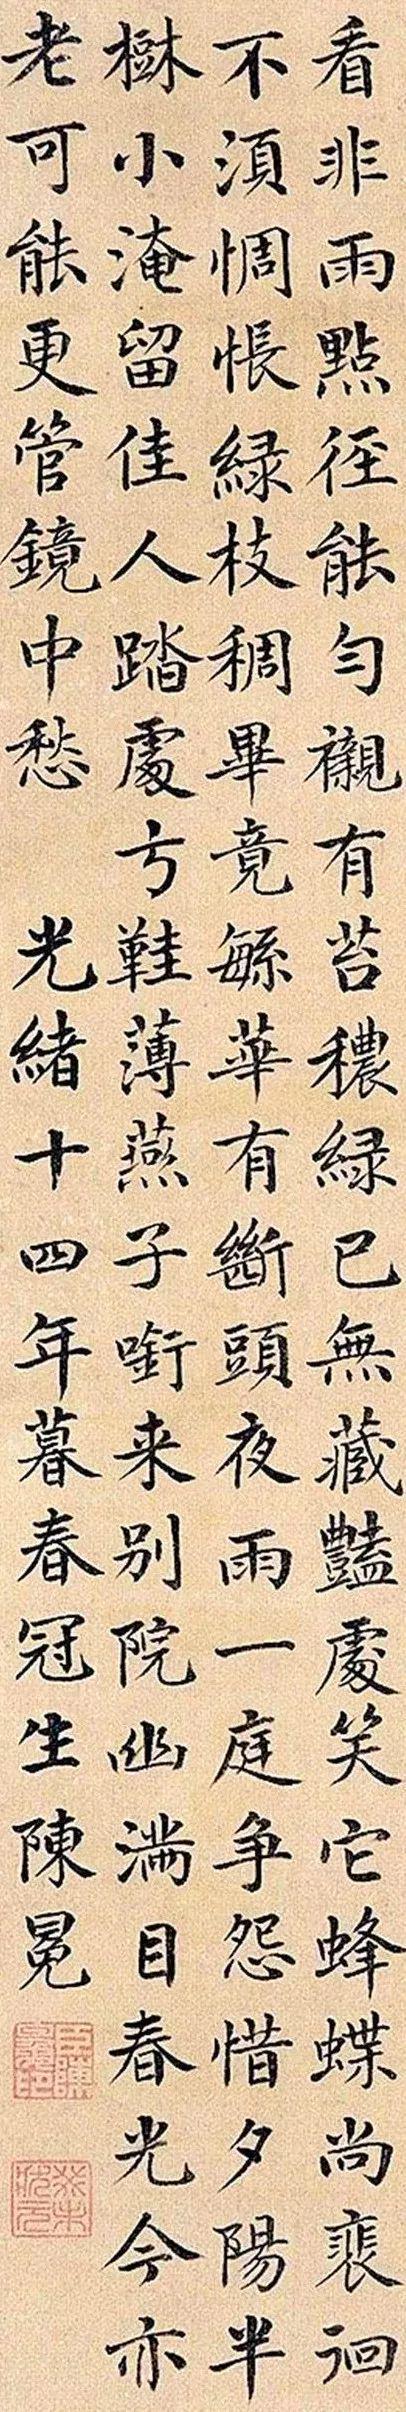 看非雨點徑能勻襯有苔穠綠已無藏豔處笑它蜂蝶尚裵徊
不須惆悵緑枝稠畢竟緐華有斷頭夜雨一庭争怨惜夕陽半
樹小淹留佳人踏處弓鞋薄燕子啣来别院幽滿目春光今亦
老可能更管鏡中愁 光緒十四年暮春冠生陳冕